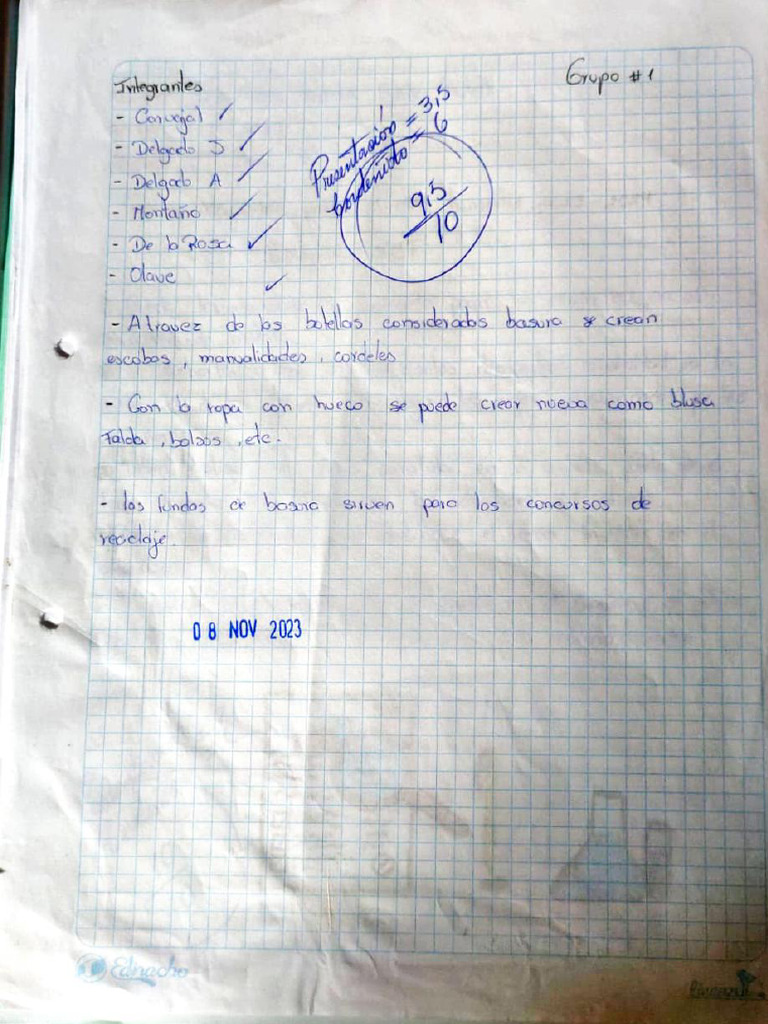 Integrantes
Grupo #1
- Carvajal
- Delgado J
- Delgado A
- Montaño
- De la Rosa
- Olave
Presentación = 3,5
Contenido = 6
9,5
10
- Atravez de las botellas considerados basura se crean
escobas, manualidades, cordeles
- Con la ropa con hueco se puede crear nueva como blusa
Falda, bolsos, etc.
- las fundas de basura sirven para los concursos de
reciclaje.
08 NOV 2023
Ednacho